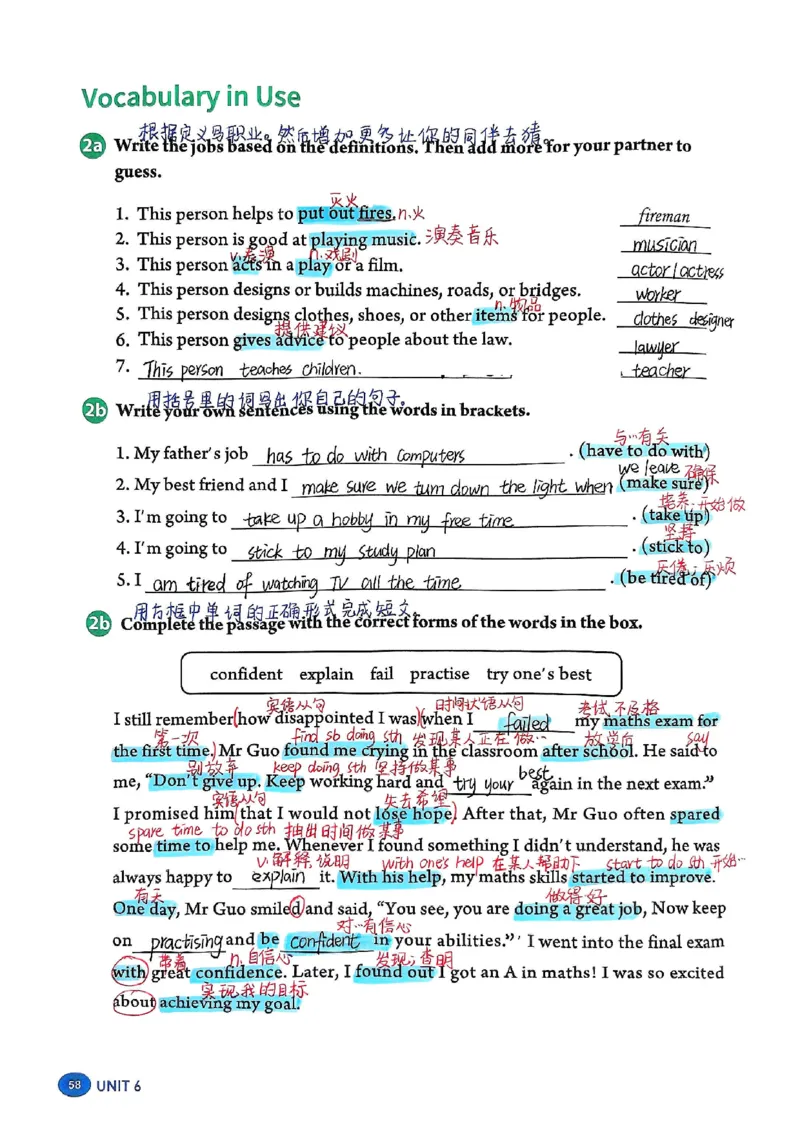 Vocabulary in Use
根据定义写职业。然后增加更多让你的同伴去猜。
2a Write the jobs based on the definitions. Then add more for your partner to
guess.
灭火
1. This person helps to put out fires. n.火 fireman
2. This person is good at playing music. 演奏音乐 musician
v.表演 n.戏剧
3. This person acts in a play or a film. actor/actress
4. This person designs or builds machines, roads, or bridges. worker
n.物品
5. This person designs clothes, shoes, or other items for people. clothes designer
提供建议
6. This person gives advice to people about the law. lawyer
7. This person teaches children. teacher
用括号里的词写出你自己的句子。
2b Write your own sentences using the words in brackets.
与…有关
1. My father's job has to do with computers. (have to do with)
we leave 确保
2. My best friend and I make sure we turn down the light when (make sure)
培养;开始做
3. I'm going to take up a hobby in my free time. (take up)
坚持
4. I'm going to stick to my study plan. (stick to)
厌倦;厌烦
5. I am tired of watching TV all the time. (be tired of)
用方框中单词的正确形式完成短文。
2b Complete the passage with the correct forms of the words in the box.
confident explain fail practise try one's best
宾语从句 时间状语从句 考试不及格
I still remember(how disappointed I was)(when I failed my maths exam for
第一次 find sb doing sth 发现某人正在做… 放学后 say
the first time.) Mr Guo found me crying in the classroom after school. He said to
别放弃 keep doing sth 坚持做某事 best
me, “Don't give up. Keep working hard and try your again in the next exam.”
宾语从句 失去希望
I promised him(that I would not lose hope). After that, Mr Guo often spared
spare time to do sth 抽出时间做某事
some time to help me. Whenever I found something I didn't understand, he was
v.解释,说明 with one's help 在某人帮助下 start to do sth 开始…
always happy to explain it. With his help, my maths skills started to improve.
有天 做得好
One day, Mr Guo smiled and said, “You see, you are doing a great job, Now keep
对…有信心
on practising and be confident in your abilities.”' I went into the final exam
带着 n.自信心 发现;查明
with great confidence. Later, I found out I got an A in maths! I was so excited
实现我的目标
about achieving my goal.
58 UNIT 6